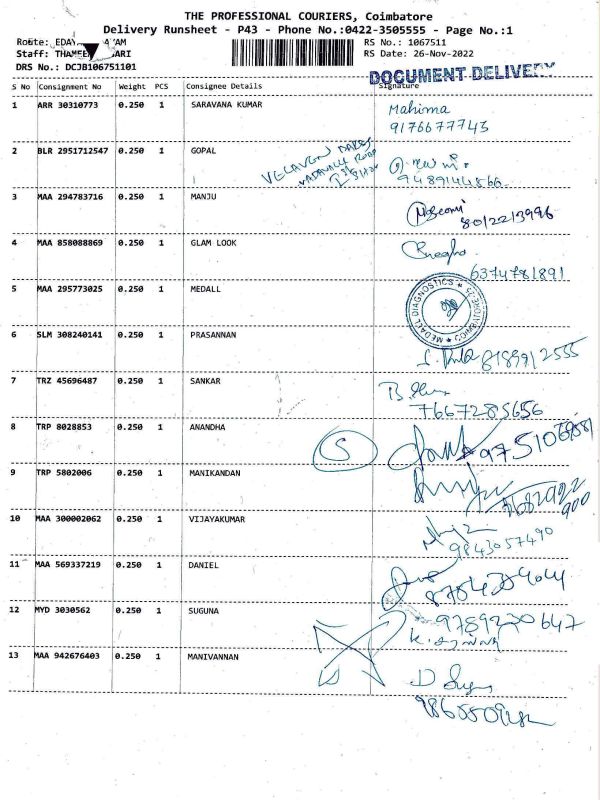 THE PROFESSIONAL COURIERS, Coimbatore
Delivery Runsheet - P43 - Phone No.:0422-3505555 - Page No.:1
Route: EDAY AM
RS No.: 1067511
Staff: THAMEE ARI
RS Date: 26-Nov-2022
DRS No.: DCJB106751101
DOCUMENT DELIVERY
S No Consignment No Weight PCS Consignee Details Signature
1 ARR 30310773 0.250 1 SARAVANA KUMAR Mahima
9176677743
2 BLR 2951712547 0.250 1 GOPAL
9489144866
3 MAA 294783716 0.250 1 MANJU
8012213996
4 MAA 858088869 0.250 1 GLAM LOOK
6374781891
5 MAA 295773025 0.250 1 MEDALL
MEDALL DIAGNOSTICS COIMBATORE-25
6 SLM 308240141 0.250 1 PRASANNAN
7 TRZ 45696487 0.250 1 SANKAR
7667285656
8 TRP 8028853 0.250 1 ANANDHA
S
9 TRP 5802006 0.250 1 MANIKANDAN
10 MAA 300002062 0.250 1 VIJAYAKUMAR
9843057490
11 MAA 569337219 0.250 1 DANIEL
12 MYD 3030562 0.250 1 SUGUNA
9789230647
13 MAA 942676403 0.250 1 MANIVANNAN